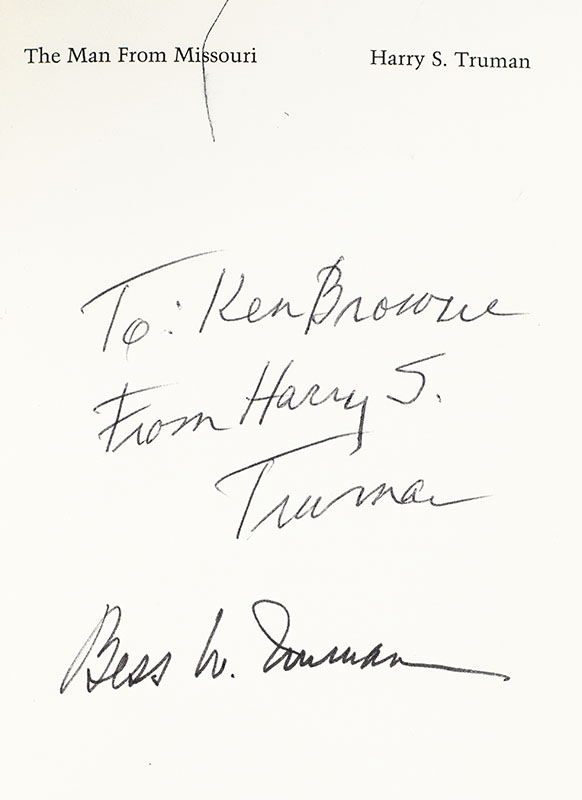 The Man From Missouri Harry S. Truman
To: Ken Browne
From Harry S.
Truman
Bess W. Truman